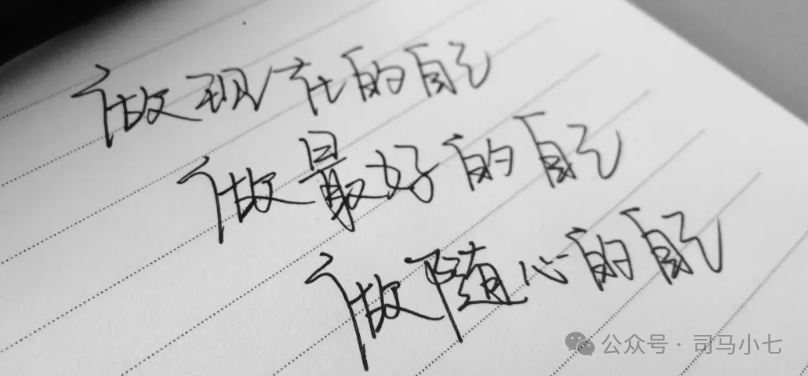 做现在的自己
做最好的自己
做随心的自己
公众号·司马小七